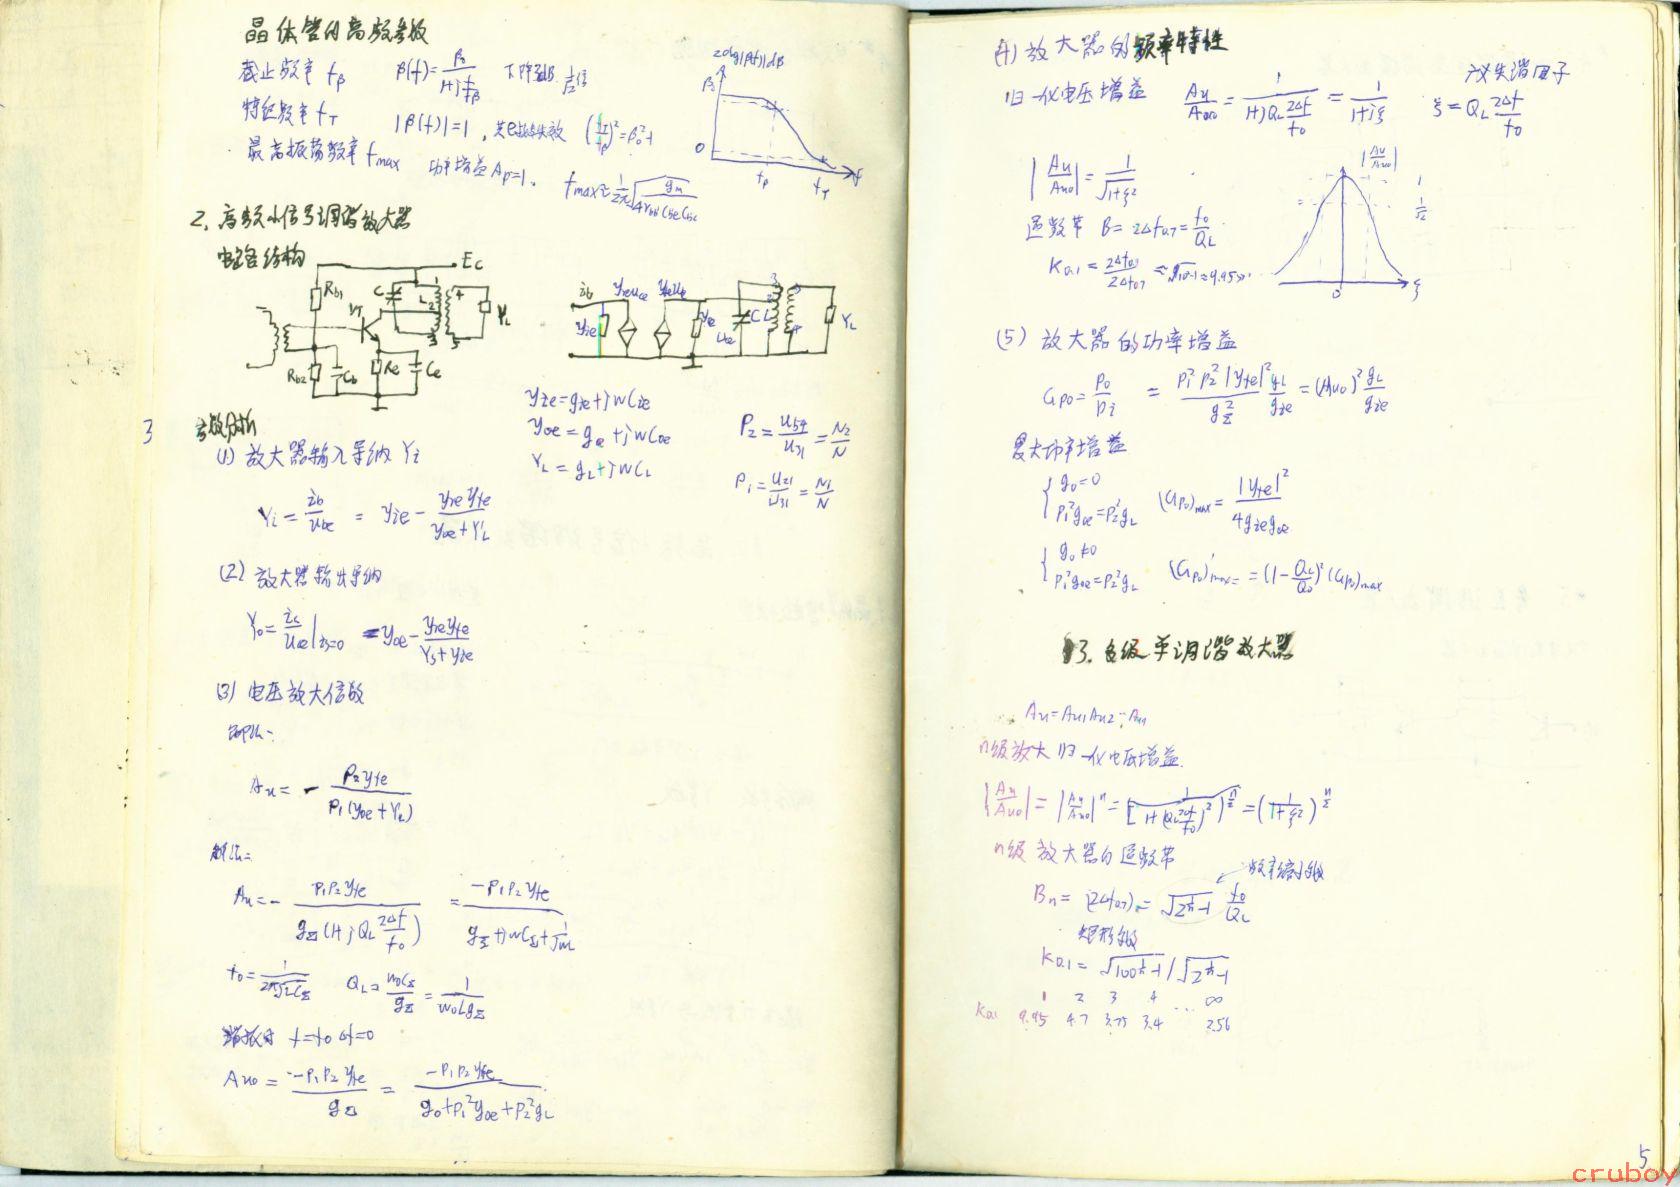 晶体管的高频参数
截止频率 fβ β(f)=β₀/(1+j f/fβ) 下降3dB
特征频率 fT |β(f)|=1, (fT/fβ)²=β₀²-1
最高振荡频率 fmax 功率增益Ap=1. fmax≈1/2π √(gm/4rbb'Cb'eCb'c)
20lg|β(f)| dB
β₀
0
fβ fT f
2. 高频小信号调谐放大器
电路结构
Ec
Rb1 C L 1 2 3 4 5 YL
VT
Rb2 Cb Re Ce
ib yreuce yfeube
yie yoe C L YL
uce
3 参数分析
yie=gie+jwCie
yoe=goe+jwCoe
YL=gL+jwCL
P2=U54/U31=N2/N
P1=U21/U31=N1/N
(1) 放大器输入导纳 Yi
Yi=ib/ube = yie-yreyfe/(yoe+Y'L)
(2) 放大器输出导纳
Yo=ic/uce|is=0 =yoe-yreyfe/(Ys+yie)
(3) 电压放大倍数
解法一
Au= - P2yfe/P1(yoe+Y'L)
解法二
Au=- P1P2yfe/gΣ(1+jQL 2Δf/f0) = -P1P2yfe/(gΣ+jwCΣ+1/jwL)
f0=1/2π√LCΣ QL=w0CΣ/gΣ=1/w0LgΣ
谐振时 f=f0 Δf=0
Au0=-P1P2yfe/gΣ = -P1P2yfe/(g0+P1²goe+P2²gL)
(4) 放大器的频率特性
归一化电压增益 Au/Au0=1/(1+jQL 2Δf/f0)=1/(1+jξ) 广义失谐因子 ξ=QL 2Δf/f0
|Au/Au0|=1/√(1+ξ²)
|Au/Au0|
1
1/√2
0 ξ
通频带 B=2Δf0.7=f0/QL
K0.1=2Δf0.1/2Δf0.7=√(10²-1)≈9.95>>1
(5) 放大器的功率增益
Gpo=Po/Pi = P1²P2²|yfe|²/gΣ² gL/gie=(Au0)² gL/gie
最大功率增益
{g0=0 P1²goe=P2²gL (Gpo)max=|yfe|²/4giegoe
{g0≠0 P1²goe=P2²gL (Gpo)'max=(1-QL/Q0)²(Gpo)max
3. 多级单调谐放大器
Au=Au1Au2…Aun
n级放大归一化电压增益.
|Au/Au0|=|Au/Au0|ⁿ=[1/(1+(QL 2Δf/f0)²)]^(n/2)=(1/(1+ξ²))^(n/2)
n级放大器的通频带
Bn=(2Δf0.7)n=√(2^(1/n)-1) f0/QL 频率缩小系数
矩形系数
K0.1=√(100^(1/n)-1)/√(2^(1/n)-1)
1 2 3 4 … ∞
K0.1 9.95 4.7 3.75 3.4 2.56
5
cruboy